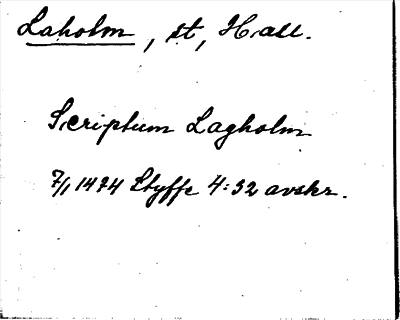 Laholm, st, Hall.
Scriptum Lagholm
7/1 1474 Styffe 4:32 avskr.